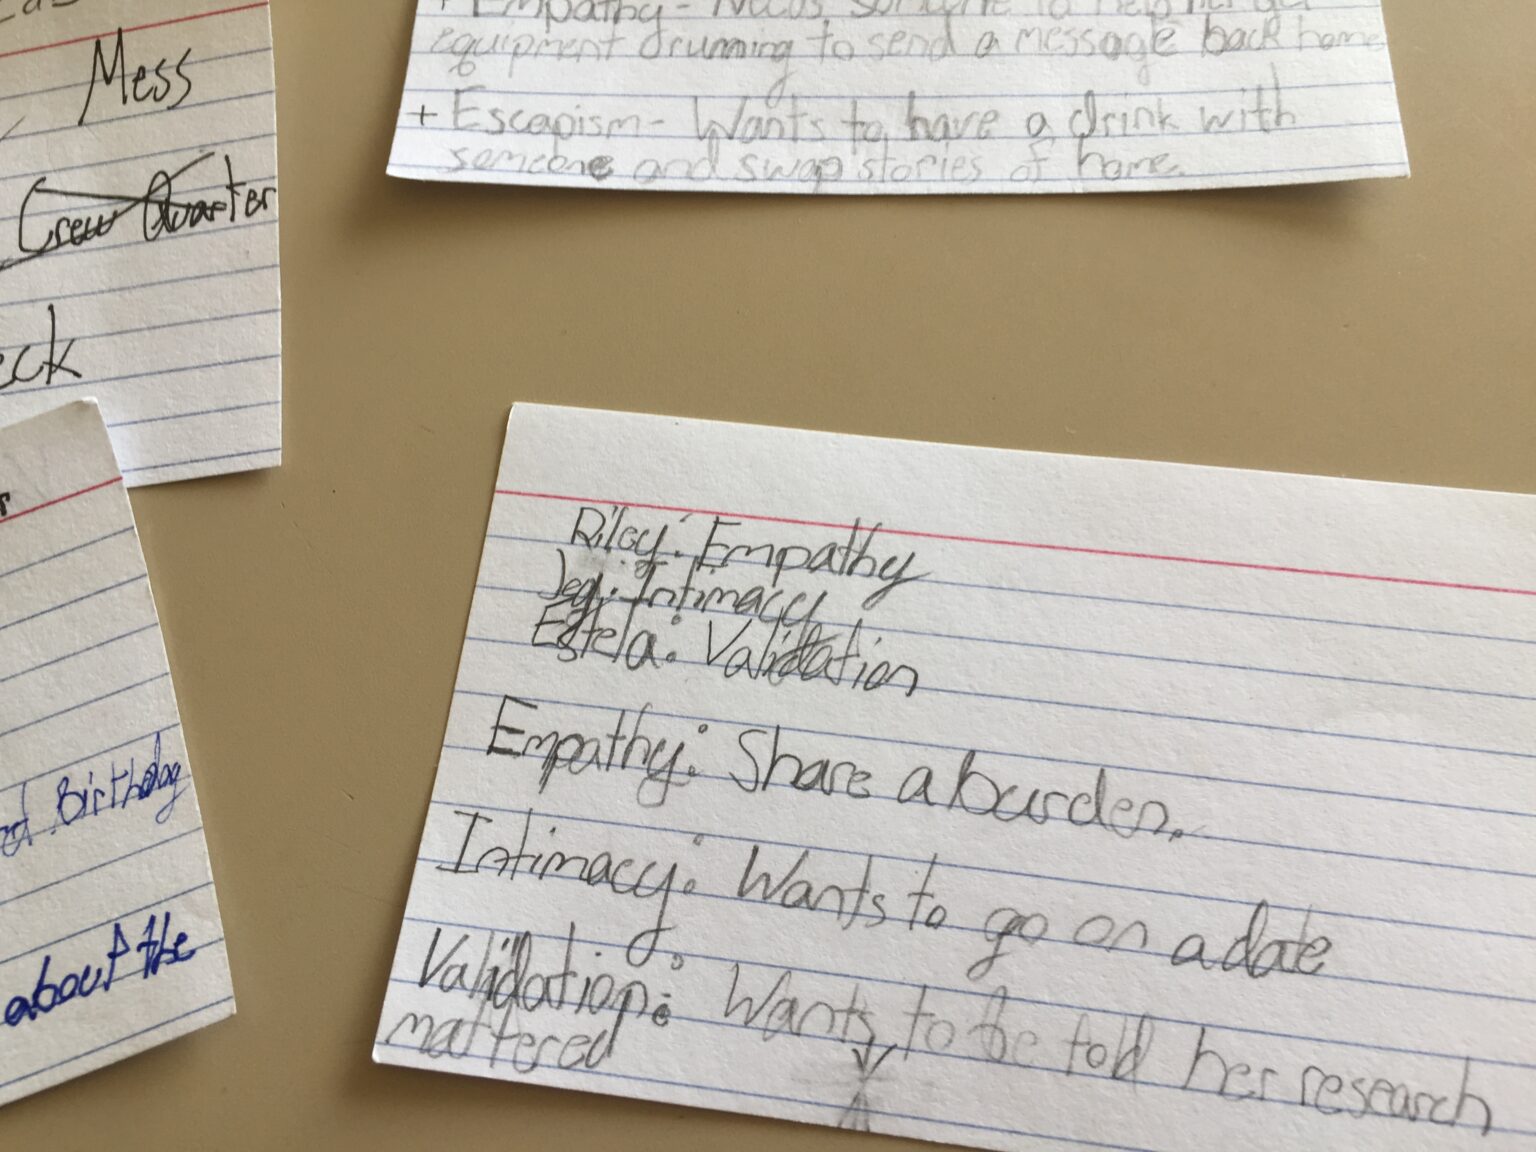 Mess
Crew Quarter
eck
+ Empathy - Needs someone to help her get
equipment running to send a message back home
+ Escapism - Wants to have a drink with
someone and swap stories of home.
Birthday
about the
Riley: Empathy
Intimacy
Estela: Validation
Empathy: Share a burden.
Intimacy: Wants to go on a date
Validation: Wants to be told her research
mattered